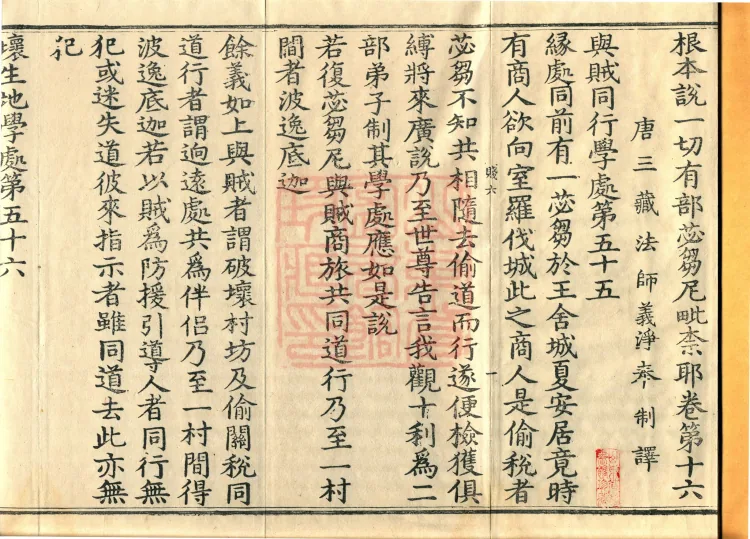 根本說一切有部苾芻尼毗柰耶卷第十六
唐三藏法師義淨奉制譯
與賊同行學處第五十五
緣處同前有一苾芻於王舍城夏安居竟時
有商人欲向室羅伐城此之商人是偷稅者
苾芻不知共相隨去偷道而行遂便檢獲俱
縛將來廣說乃至世尊告言我觀十利爲二
部弟子制其學處應如是說
若復苾芻尼與賊商旅共同道行乃至一村
間者波逸底迦
餘義如上與賊者謂破壞村坊及偷關稅同
道行者謂迥遠處共爲伴侶乃至一村間得
波逸底迦若以賊爲防援引導人者同行無
犯或迷失道彼來指示者雖同道去此亦無
犯
壞生地學處第五十六